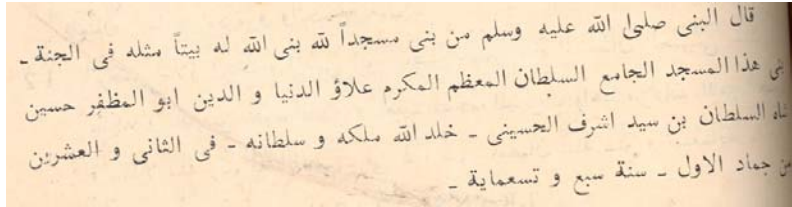 قال البنى صلىا الله عليه وسلم من بنى مسجداً لله بنى الله له بيتاً مثله فى الجنة ـ
بنى هذا المسجد الجامع السلطان المعظم المكرم علاؤ الدنيا و الدين ابو المظفر حسين
شاه السلطان بن سيد اشرف الحسينى ـ خلد الله ملكه و سلطانه ـ فى الثانى و العشرين
من جماد الاول ـ سنة سبع و تسعماية ـ